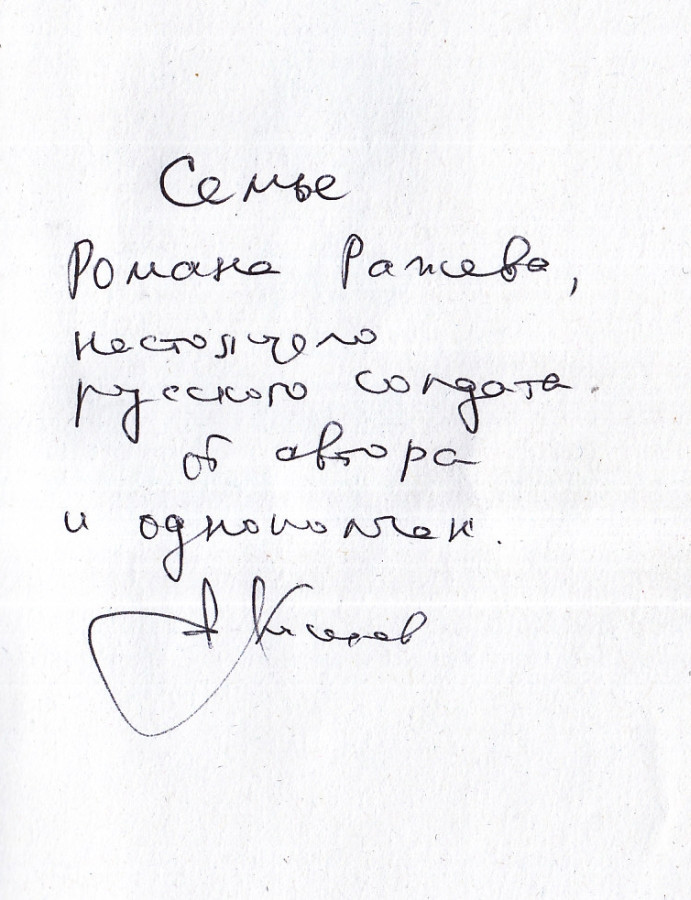 Семье
Романа Ражева,
настоящего
русского солдата
от автора
и однополчан.